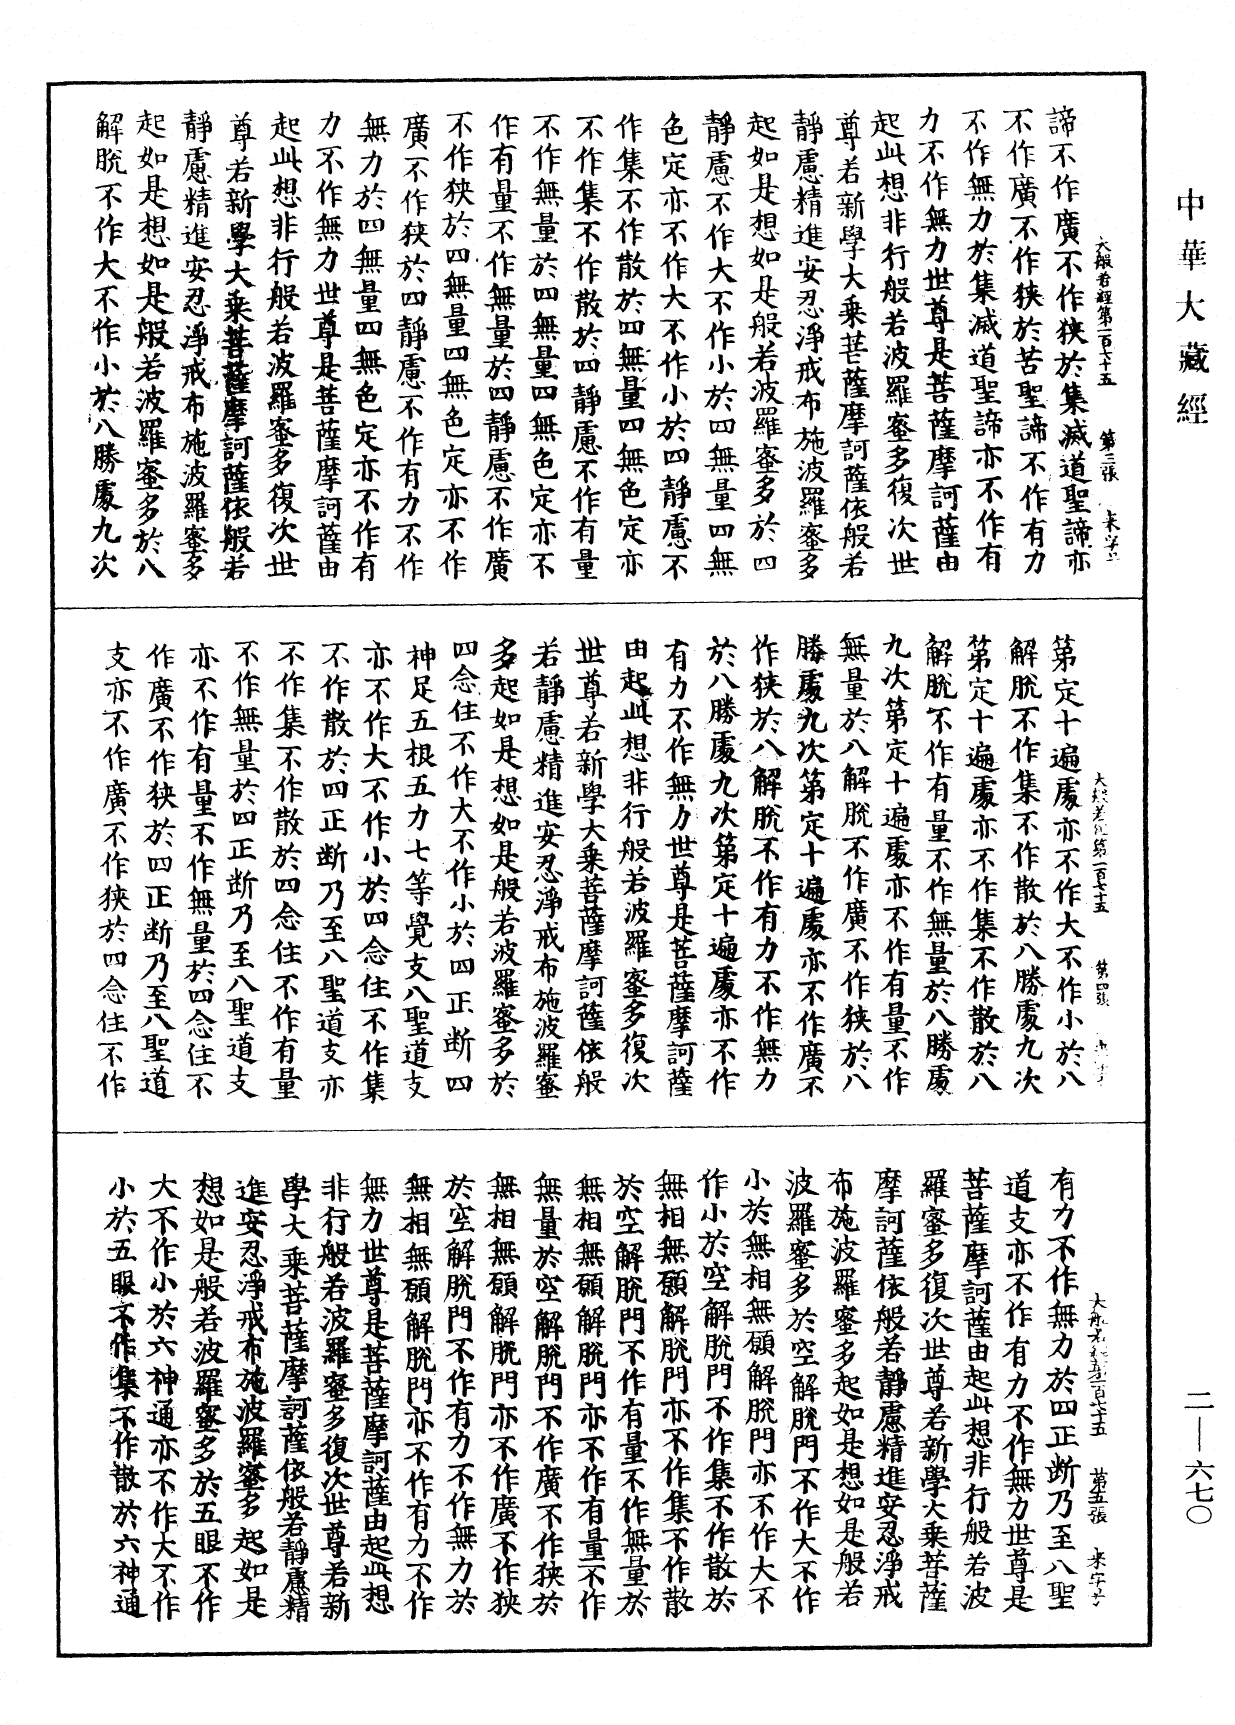 中華大藏經
大般若經第一百七十五 第三張
諦不作廣不作狹於集滅道聖諦亦
不作廣不作狹於苦聖諦不作有力
不作無力於集滅道聖諦亦不作有
力不作無力世尊是菩薩摩訶薩由
起此想非行般若波羅蜜多復次世
尊若新學大乘菩薩摩訶薩依般若
靜慮精進安忍淨戒布施波羅蜜多
起如是想如是般若波羅蜜多於四
靜慮不作大不作小於四無量四無
色定亦不作大不作小於四靜慮不
作集不作散於四無量四無色定亦
不作集不作散於四靜慮不作有量
不作無量於四無量四無色定亦不
作有量不作無量於四靜慮不作廣
不作狹於四無量四無色定亦不作
廣不作狹於四靜慮不作有力不作
無力於四無量四無色定亦不作有
力不作無力世尊是菩薩摩訶薩由
起此想非行般若波羅蜜多復次世
尊若新學大乘菩薩摩訶薩依般若
靜慮精進安忍淨戒布施波羅蜜多
起如是想如是般若波羅蜜多於八
解脫不作大不作小於八勝處九次
大般若經第一百七十五 第四張
第定十遍處亦不作大不作小於八
解脫不作集不作散於八勝處九次
第定十遍處亦不作集不作散於八
解脫不作有量不作無量於八勝處
九次第定十遍處亦不作有量不作
無量於八解脫不作廣不作狹於八
勝處九次第定十遍處亦不作廣不
作狹於八解脫不作有力不作無力
於八勝處九次第定十遍處亦不作
有力不作無力世尊是菩薩摩訶薩
由起此想非行般若波羅蜜多復次
世尊若新學大乘菩薩摩訶薩依般
若靜慮精進安忍淨戒布施波羅蜜
多起如是想如是般若波羅蜜多於
四念住不作大不作小於四正斷四
神足五根五力七等覺支八聖道支
亦不作大不作小於四念住不作集
不作散於四正斷乃至八聖道支亦
不作集不作散於四念住不作有量
不作無量於四正斷乃至八聖道支
亦不作有量不作無量於四念住不
作廣不作狹於四正斷乃至八聖道
支亦不作廣不作狹於四念住不作
大般若經第一百七十五 第五張 來字号
有力不作無力於四正斷乃至八聖
道支亦不作有力不作無力世尊是
菩薩摩訶薩由起此想非行般若波
羅蜜多復次世尊若新學大乘菩薩
摩訶薩依般若靜慮精進安忍淨戒
布施波羅蜜多起如是想如是般若
波羅蜜多於空解脫門不作大不作
小於無相無願解脫門亦不作大不
作小於空解脫門不作集不作散於
無相無願解脫門亦不作集不作散
於空解脫門不作有量不作無量於
無相無願解脫門亦不作有量不作
無量於空解脫門不作廣不作狹於
無相無願解脫門亦不作廣不作狹
於空解脫門不作有力不作無力於
無相無願解脫門亦不作有力不作
無力世尊是菩薩摩訶薩由起此想
非行般若波羅蜜多復次世尊若新
學大乘菩薩摩訶薩依般若靜慮精
進安忍淨戒布施波羅蜜多起如是
想如是般若波羅蜜多於五眼不作
大不作小於六神通亦不作大不作
小於五眼不作集不作散於六神通
二—六七〇